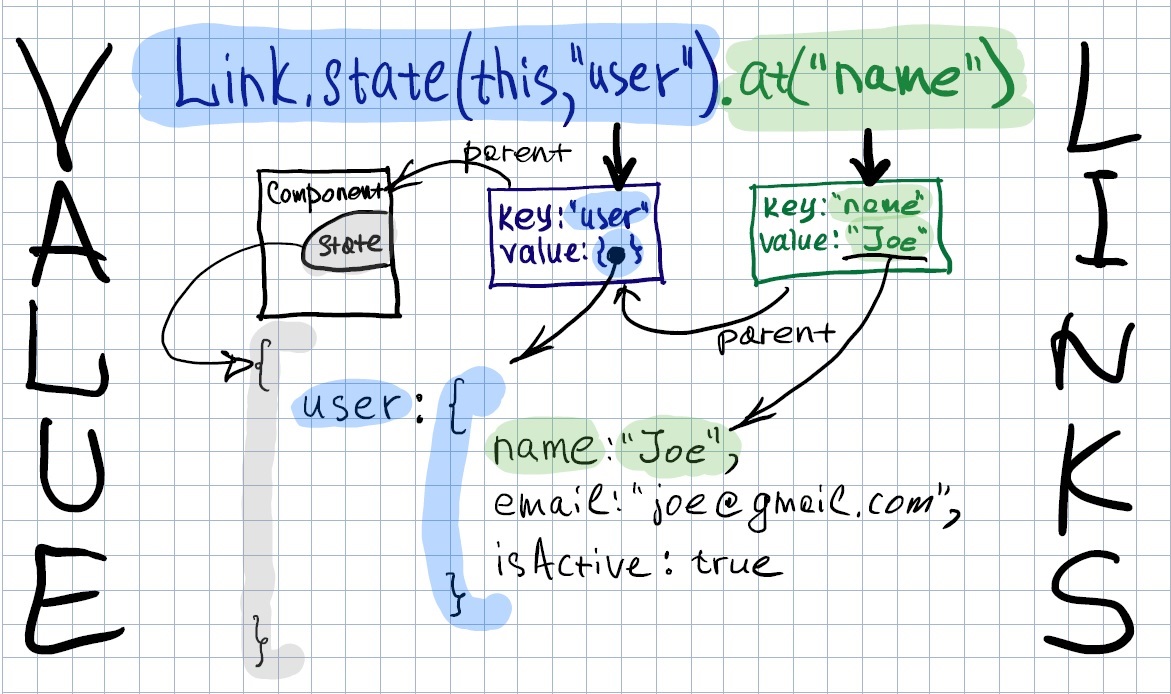 VALUE
Link.state(this,"user").at("name")
LINKS
parent
Component
state
key:"user"
value:{ }
key:"name"
value:"Joe"
parent
{
user:{
name:"Joe",
email:"joe@gmail.com",
isActive: true
}
}